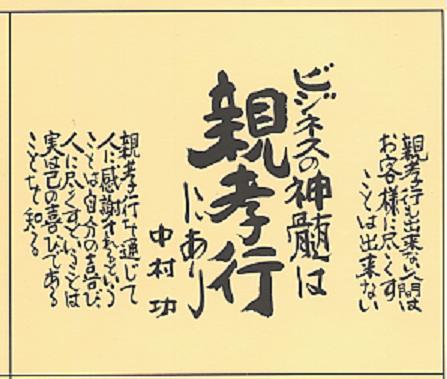 親孝行も出来ない人間は
お客様に尽くす
ことは出来ない
ビジネスの神髄は
親孝行
にあり
中村 功
親孝行を通じて
人に感謝されるという
ことは自分の喜び、
人に尽くすということは
実は己の喜びである
ことを知る